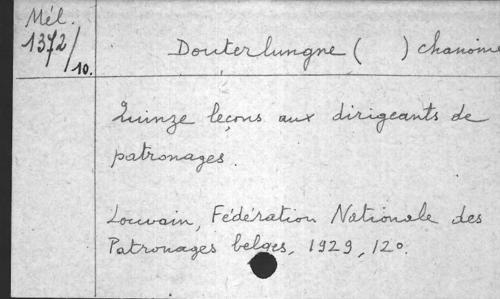 Mél.
1372/10.
Douterlungne ( ) chanoine
Quinze leçons aux dirigeants de
patronages.
Louvain, Fédération Nationale des
Patronages belges, 1929, 12°.